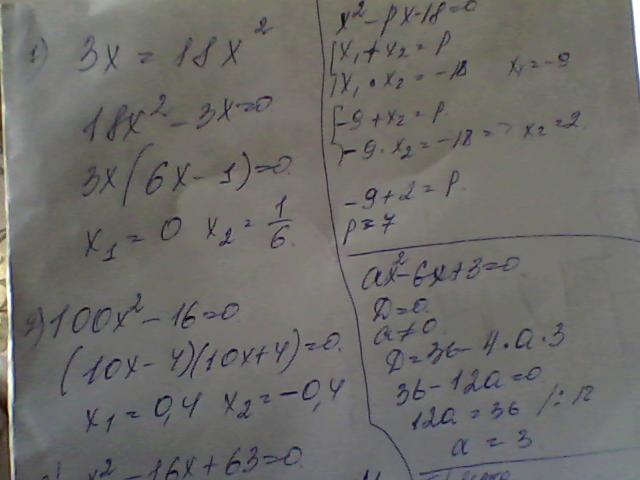 1) 3x = 18x²
18x² - 3x=0
3x(6x - 1)=0
x₁ = 0 x₂ = 1/6
2) 100x² - 16=0
(10x - 4)(10x+4)=0
x₁ = 0,4 x₂ = -0,4
x² - 16x + 63=0
x² - px - 18=0
{x₁ + x₂ = p
x₁ · x₂ = -18 x₁ = -9
{-9 + x₂ = p
-9 · x₂ = -18 => x₂ = 2
-9 + 2 = p
p = 7
ax² - 6x + 3=0
D=0
a≠0
D = 36 - 4·a·3
36 - 12a=0
12a = 36 /:12
a = 3